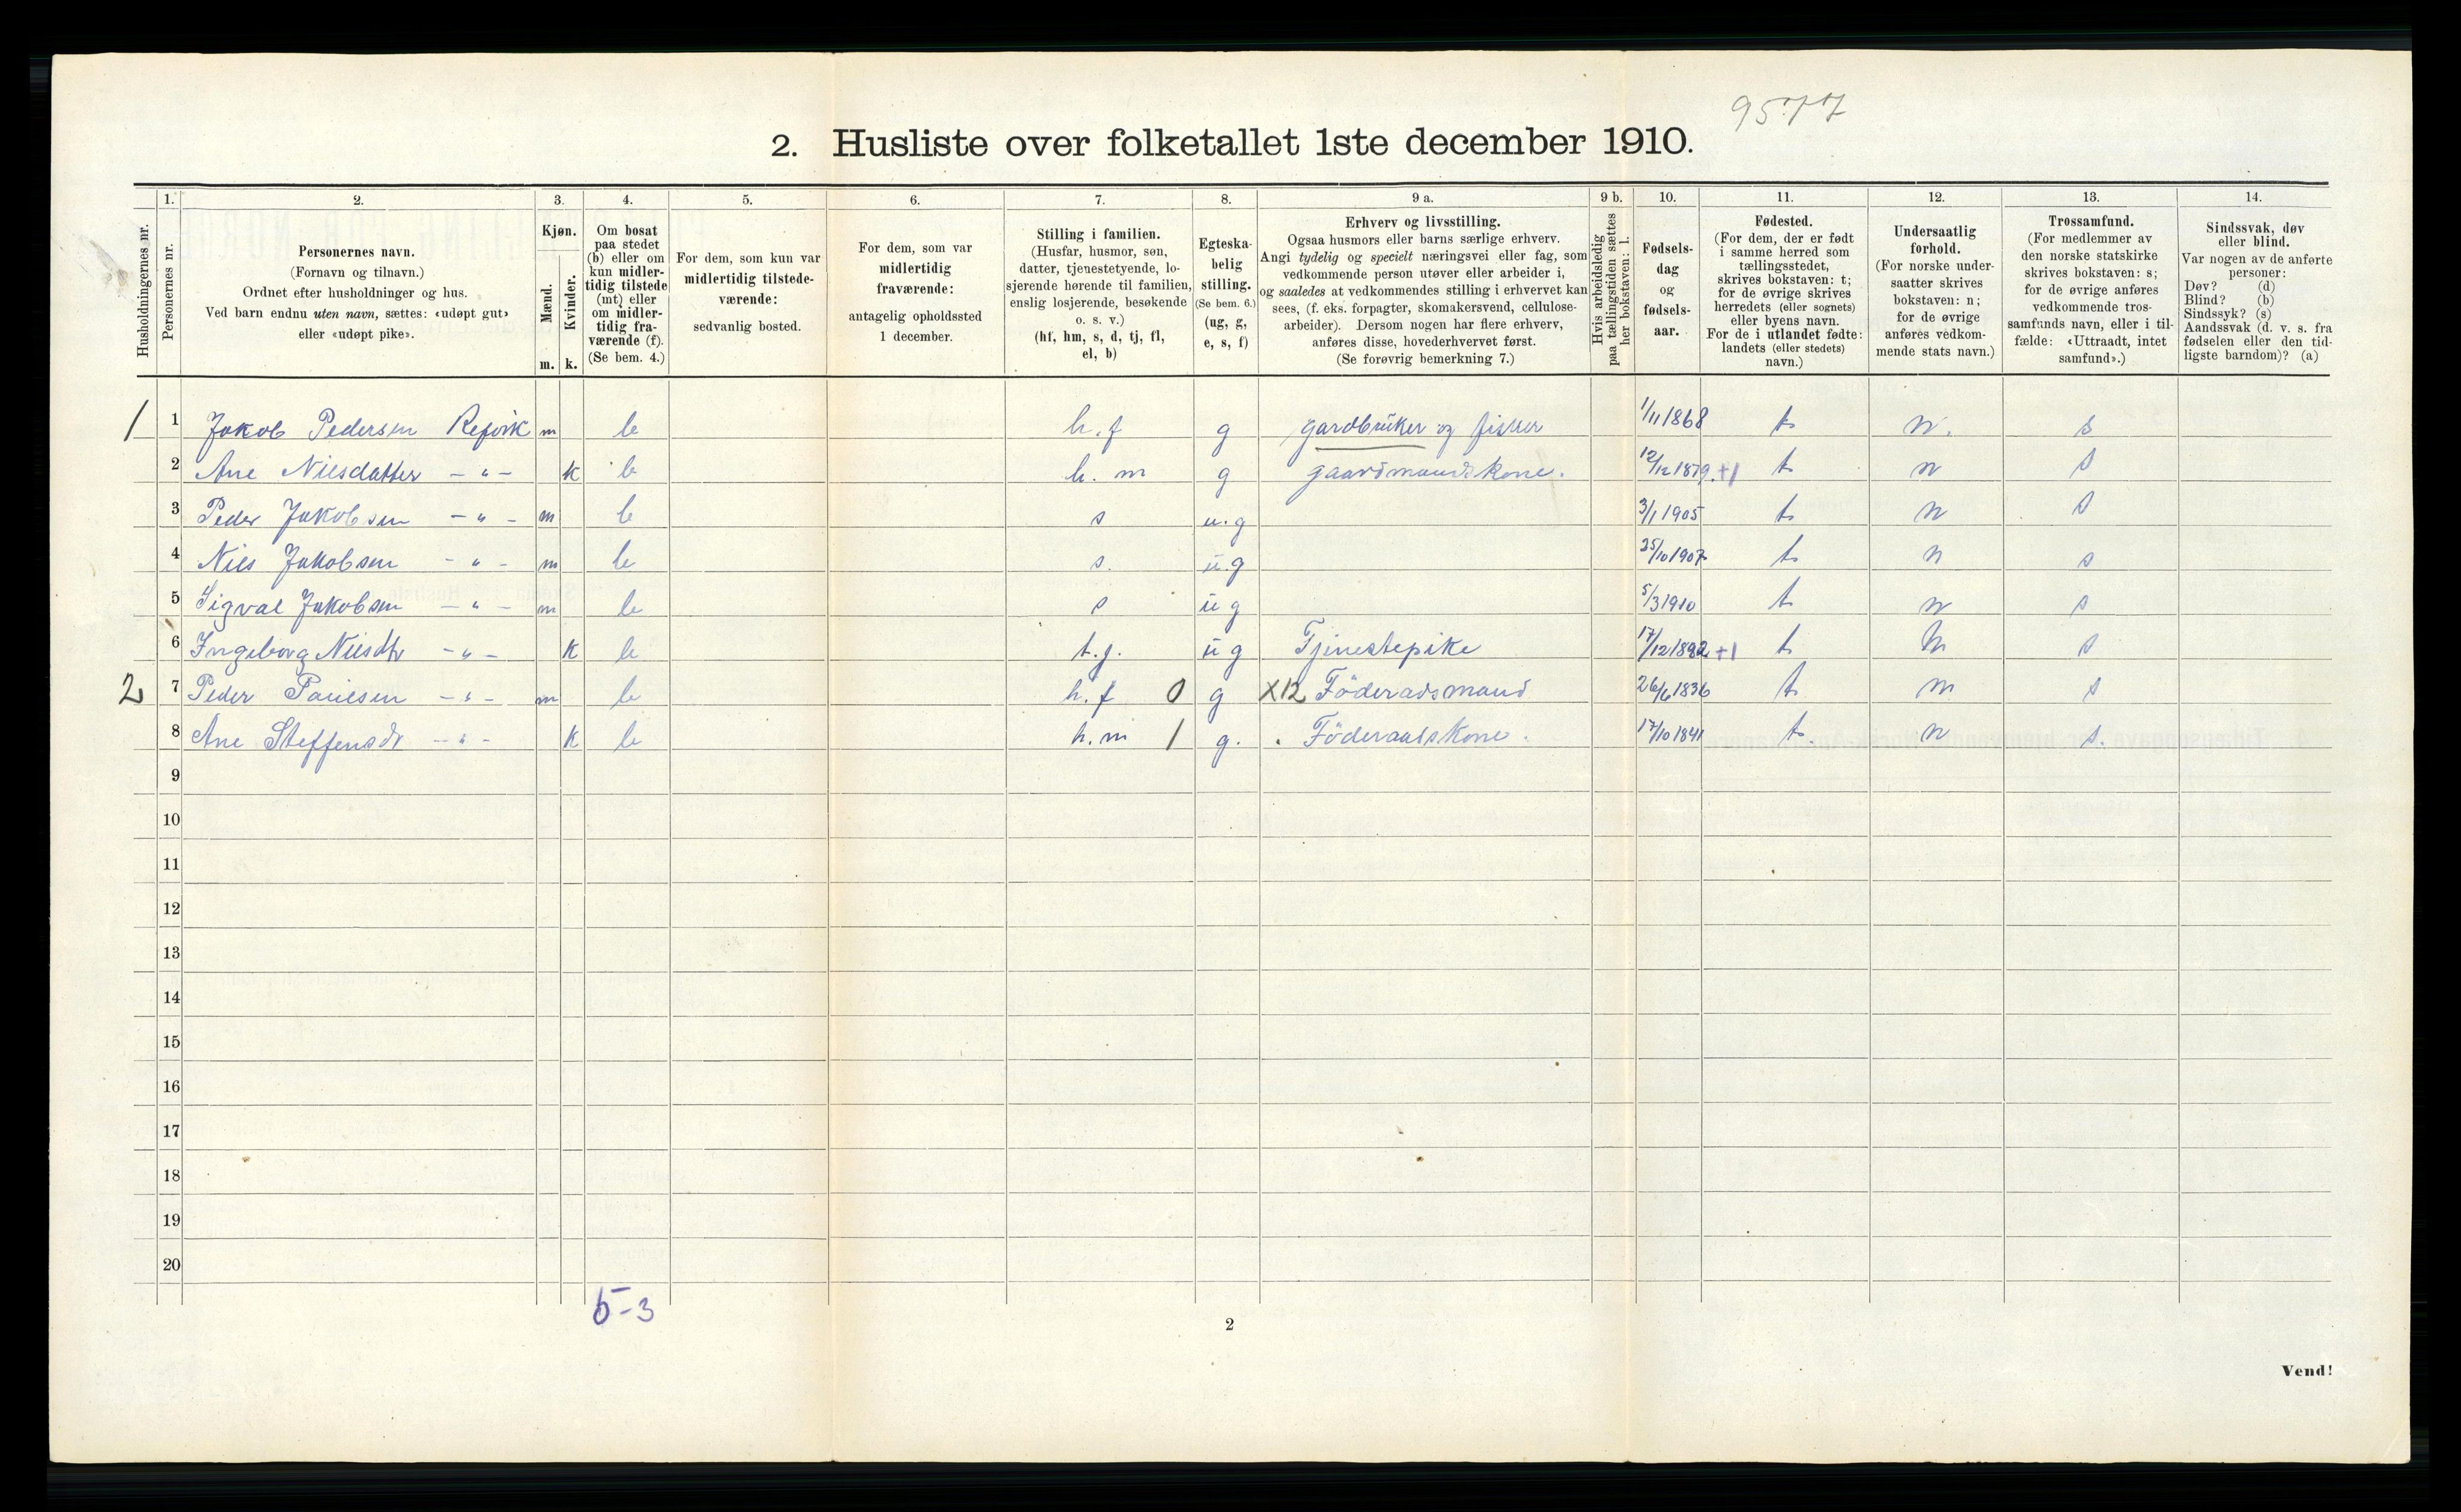 9577
2. Husliste over folketallet 1ste december 1910.
Husholdningernes nr.
1. Personernes nr.
2. Personernes navn.
(Fornavn og tilnavn.)
Ordnet efter husholdninger og hus.
Ved barn endnu uten navn, sættes: «udøpt gut»
eller «udøpt pike».
3. Kjøn.
Mænd. Kvinder.
m. k.
4. Om bosat
paa stedet
(b) eller om
kun midler-
tidig tilstede
(mt) eller
om midler-
tidig fra-
værende (f).
(Se bem. 4.)
5. For dem, som kun var
midlertidig tilstede-
værende:
sedvanlig bosted.
6. For dem, som var
midlertidig
fraværende:
antagelig opholdssted
1 december.
7. Stilling i familien.
(Husfar, husmor, søn,
datter, tjenestetyende, lo-
sjerende hørende til familien,
enslig losjerende, besøkende
o. s. v.)
(hf, hm, s, d, tj, fl,
el, b)
8. Egteska-
belig
stilling.
(Se bem. 6.)
(ug, g,
e, s, f)
9 a. Erhverv og livsstilling.
Ogsaa husmors eller barns særlige erhverv.
Angi tydelig og specielt næringsvei eller fag, som
vedkommende person utøver eller arbeider i,
og saaledes at vedkommendes stilling i erhvervet kan
sees, (f. eks. forpagter, skomakersvend, cellulose-
arbeider). Dersom nogen har flere erhverv,
anføres disse, hovederhvervet først.
(Se forøvrig bemerkning 7.)
9 b. Hvis arbeidsledig
paa tællingstiden sættes
her bokstaven: l.
10. Fødsels-
dag
og
fødsels-
aar.
11. Fødested.
(For dem, der er født
i samme herred som
tællingsstedet,
skrives bokstaven: t;
for de øvrige skrives
herredets (eller sognets)
eller byens navn.
For de i utlandet fødte:
landets (eller stedets)
navn.)
12. Undersaatlig
forhold.
(For norske under-
saatter skrives
bokstaven: n;
for de øvrige
anføres vedkom-
mende stats navn.)
13. Trossamfund.
(For medlemmer av
den norske statskirke
skrives bokstaven: s;
for de øvrige anføres
vedkommende tros-
samfunds navn, eller i til-
fælde: «Uttraadt, intet
samfund».)
14. Sindssvak, døv
eller blind.
Var nogen av de anførte
personer:
Døv? (d)
Blind? (b)
Sindssyk? (s)
Aandssvak (d. v. s. fra
fødselen eller den tid-
ligste barndom)? (a)
1 1 Jakob Pedersen Refvik m b h.f g gardbruker og fisker 1/11 1868 t n. s
2 Ane Nilsdatter - " - k b h.m g gaardmandskone. 12/12 1879 +1 t n s
3 Peder Jakobsen - " - m b s u.g 3/1 1905 t n s
4 Nils Jakobsen - " - m b s. u.g 25/10 1907 t n s
5 Sigval Jakobsen - " - m b s u g 5/3 1910 t n s
6 Ingeborg Nilsdtr - " - k b t.j. u g Tjenestepike 17/12 1892 +1 t n s
2 7 Peder Paulsen - " - m b h.f 0 g X12 Föderadsmand 26/6 1836 t n s
8 Ane Steffensdr - " - k b h.m 1 g. Föderaadskone. 17/10 1841 t. n s.
9
10
11
12
13
14
15
16
17
18
19
20
5-3
2
Vend!